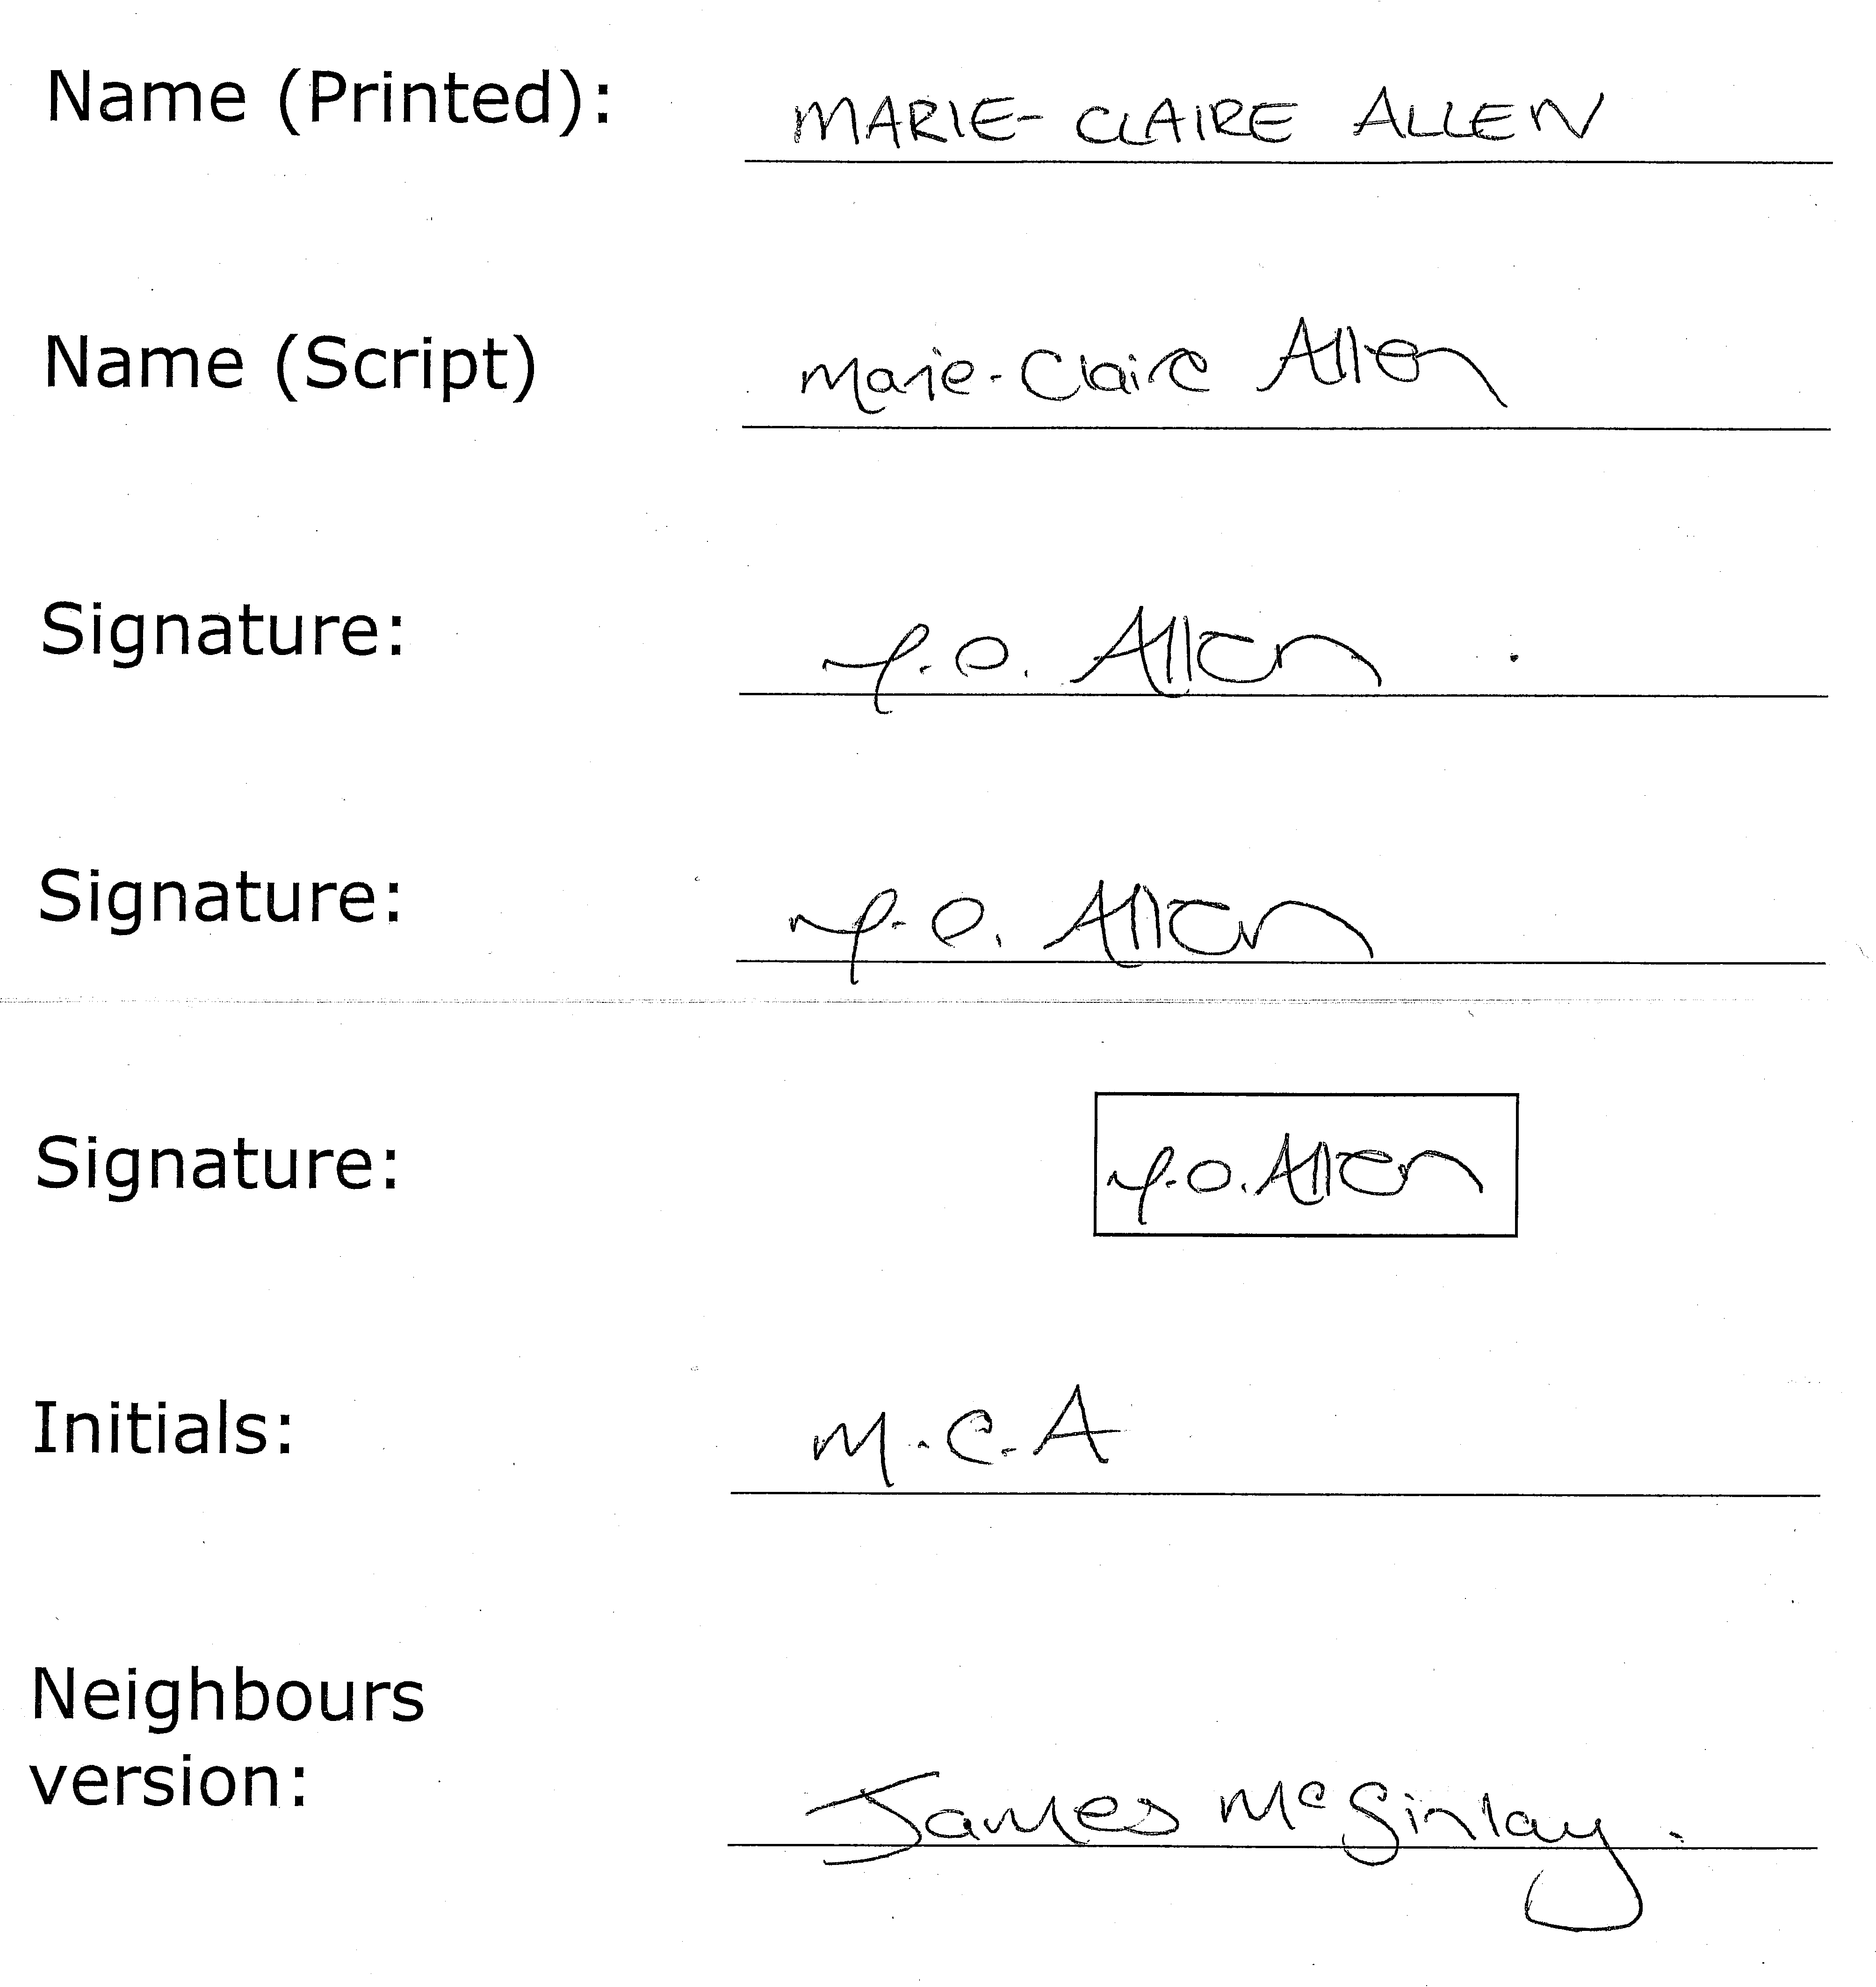 Name (Printed): MARIE-CLAIRE ALLEN
Name (Script) Marie-Claire Allen
Signature: M.C. Allen
Signature: M.C. Allen
Signature: M.C. Allen
Initials: M.C.A
Neighbours
version: James McGinlay.